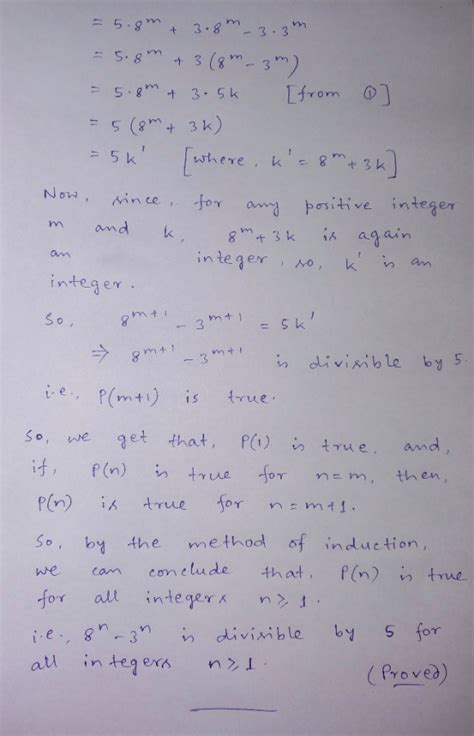 = 5·8^m + 3·8^m - 3·3^m
= 5·8^m + 3 (8^m - 3^m)
= 5·8^m + 3·5k [from ①]
= 5 (8^m + 3k)
= 5k' [where, k' = 8^m + 3k]
Now, since, for any positive integer
m and k, 8^m + 3k is again
an integer, so, k' is an
integer.
So, 8^{m+1} - 3^{m+1} = 5k'
⇒ 8^{m+1} - 3^{m+1} is divisible by 5.
i.e., P(m+1) is true.
So, we get that, P(1) is true, and,
if, P(n) is true for n=m, then,
P(n) is true for n=m+1.
So, by the method of induction,
we can conclude that, P(n) is true
for all integers n≥1.
i.e., 8^n - 3^n is divisible by 5 for
all integers n≥1.
(Proved)